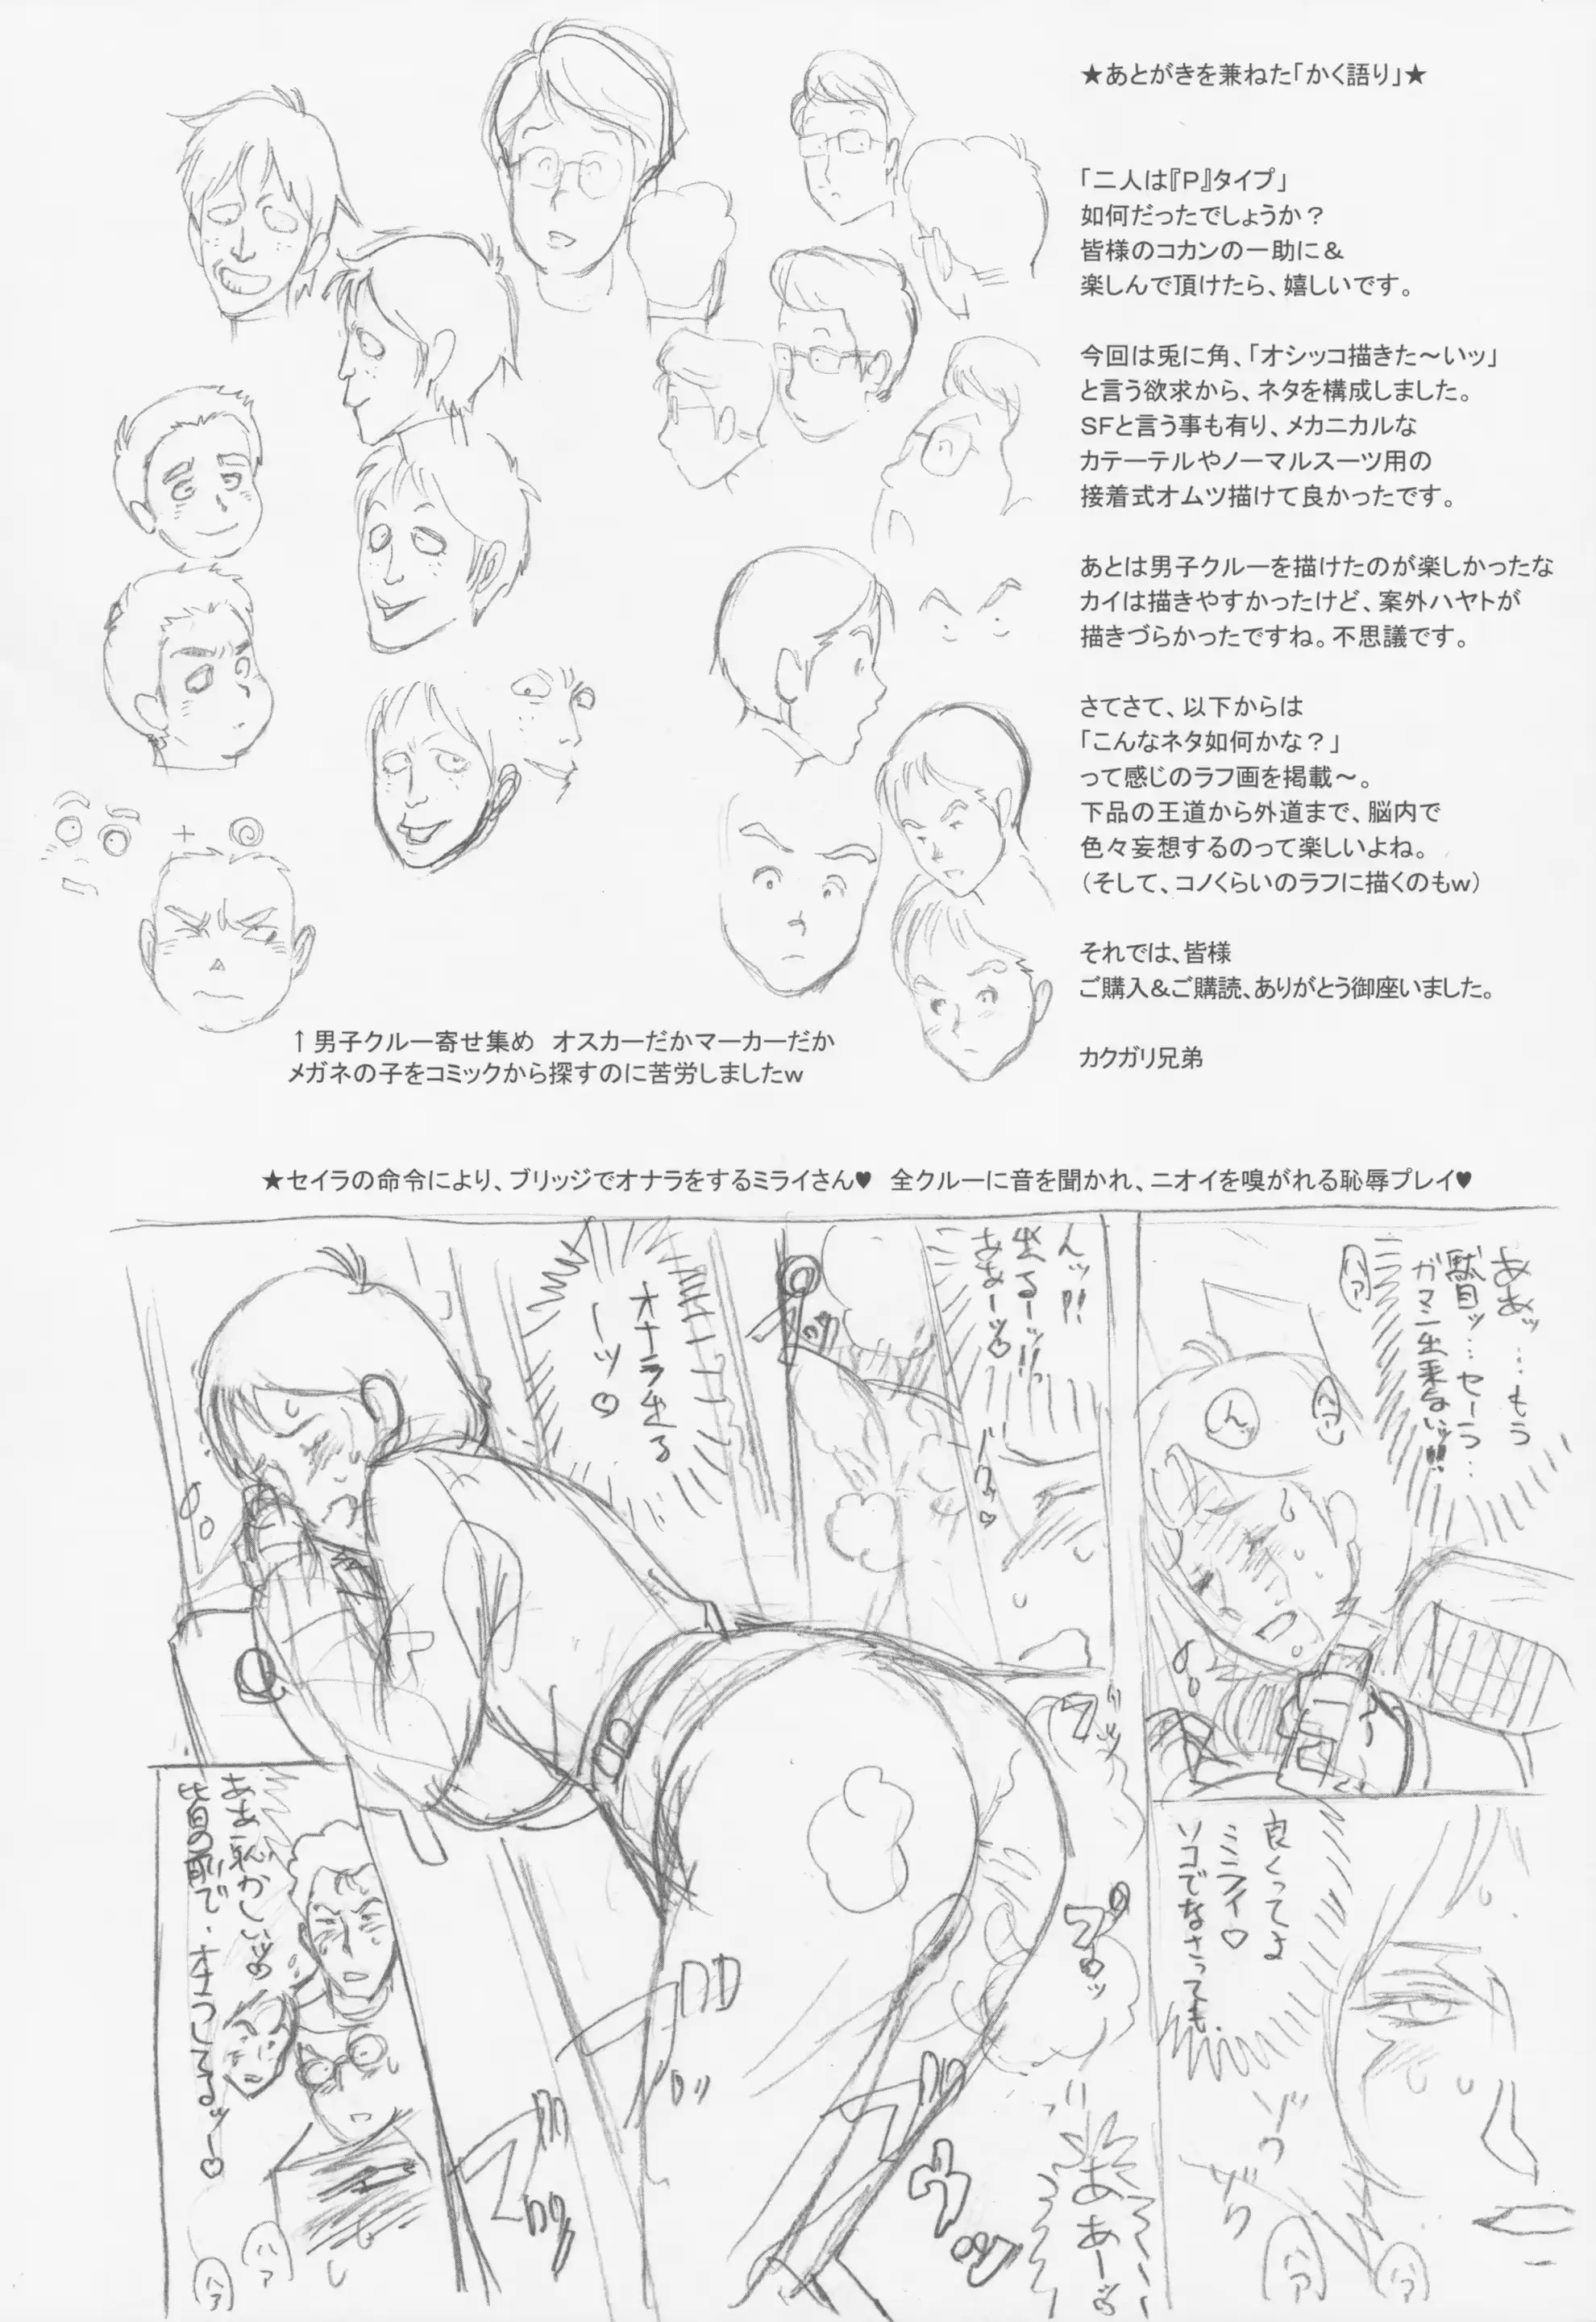 ★あとがきを兼ねた「かく語り」★
「二人は『P』タイプ」
如何だったでしょうか？
皆様のコカンの一助に＆
楽しんで頂けたら、嬉しいです。
今回は兎に角、「オシッコ描きた～いッ」
と言う欲求から、ネタを構成しました。
SFと言う事も有り、メカニカルな
カテーテルやノーマルスーツ用の
接着式オムツ描けて良かったです。
あとは男子クルーを描けたのが楽しかったな
カイは描きやすかったけど、案外ハヤトが
描きづらかったですね。不思議です。
さてさて、以下からは
「こんなネタ如何かな？」
って感じのラフ画を掲載～。
下品の王道から外道まで、脳内で
色々妄想するのって楽しいよね。
（そして、コノくらいのラフに描くのもw）
それでは、皆様
ご購入＆ご購読、ありがとう御座いました。
カクガリ兄弟
↑男子クルー寄せ集め　オスカーだかマーカーだか
メガネの子をコミックから探すのに苦労しましたw
★セイラの命令により、ブリッジでオナラをするミライさん♥　全クルーに音を聞かれ、ニオイを嗅がれる恥辱プレイ♥
ああッ…もう
駄目ッ…セーラ…
ガマン出来ないッ!!
ハア
ん
良くってよ
ミライ♡
ソコでなさっても
ゾク
ゾク
ハア
ハア
んッ!!
出るーッ!!
ああーッ♡
オナラ出る
ーッ♡
ああーッ
ああ恥かしいッ
皆の前で…オナラしてるッ♡
ハア
ハア